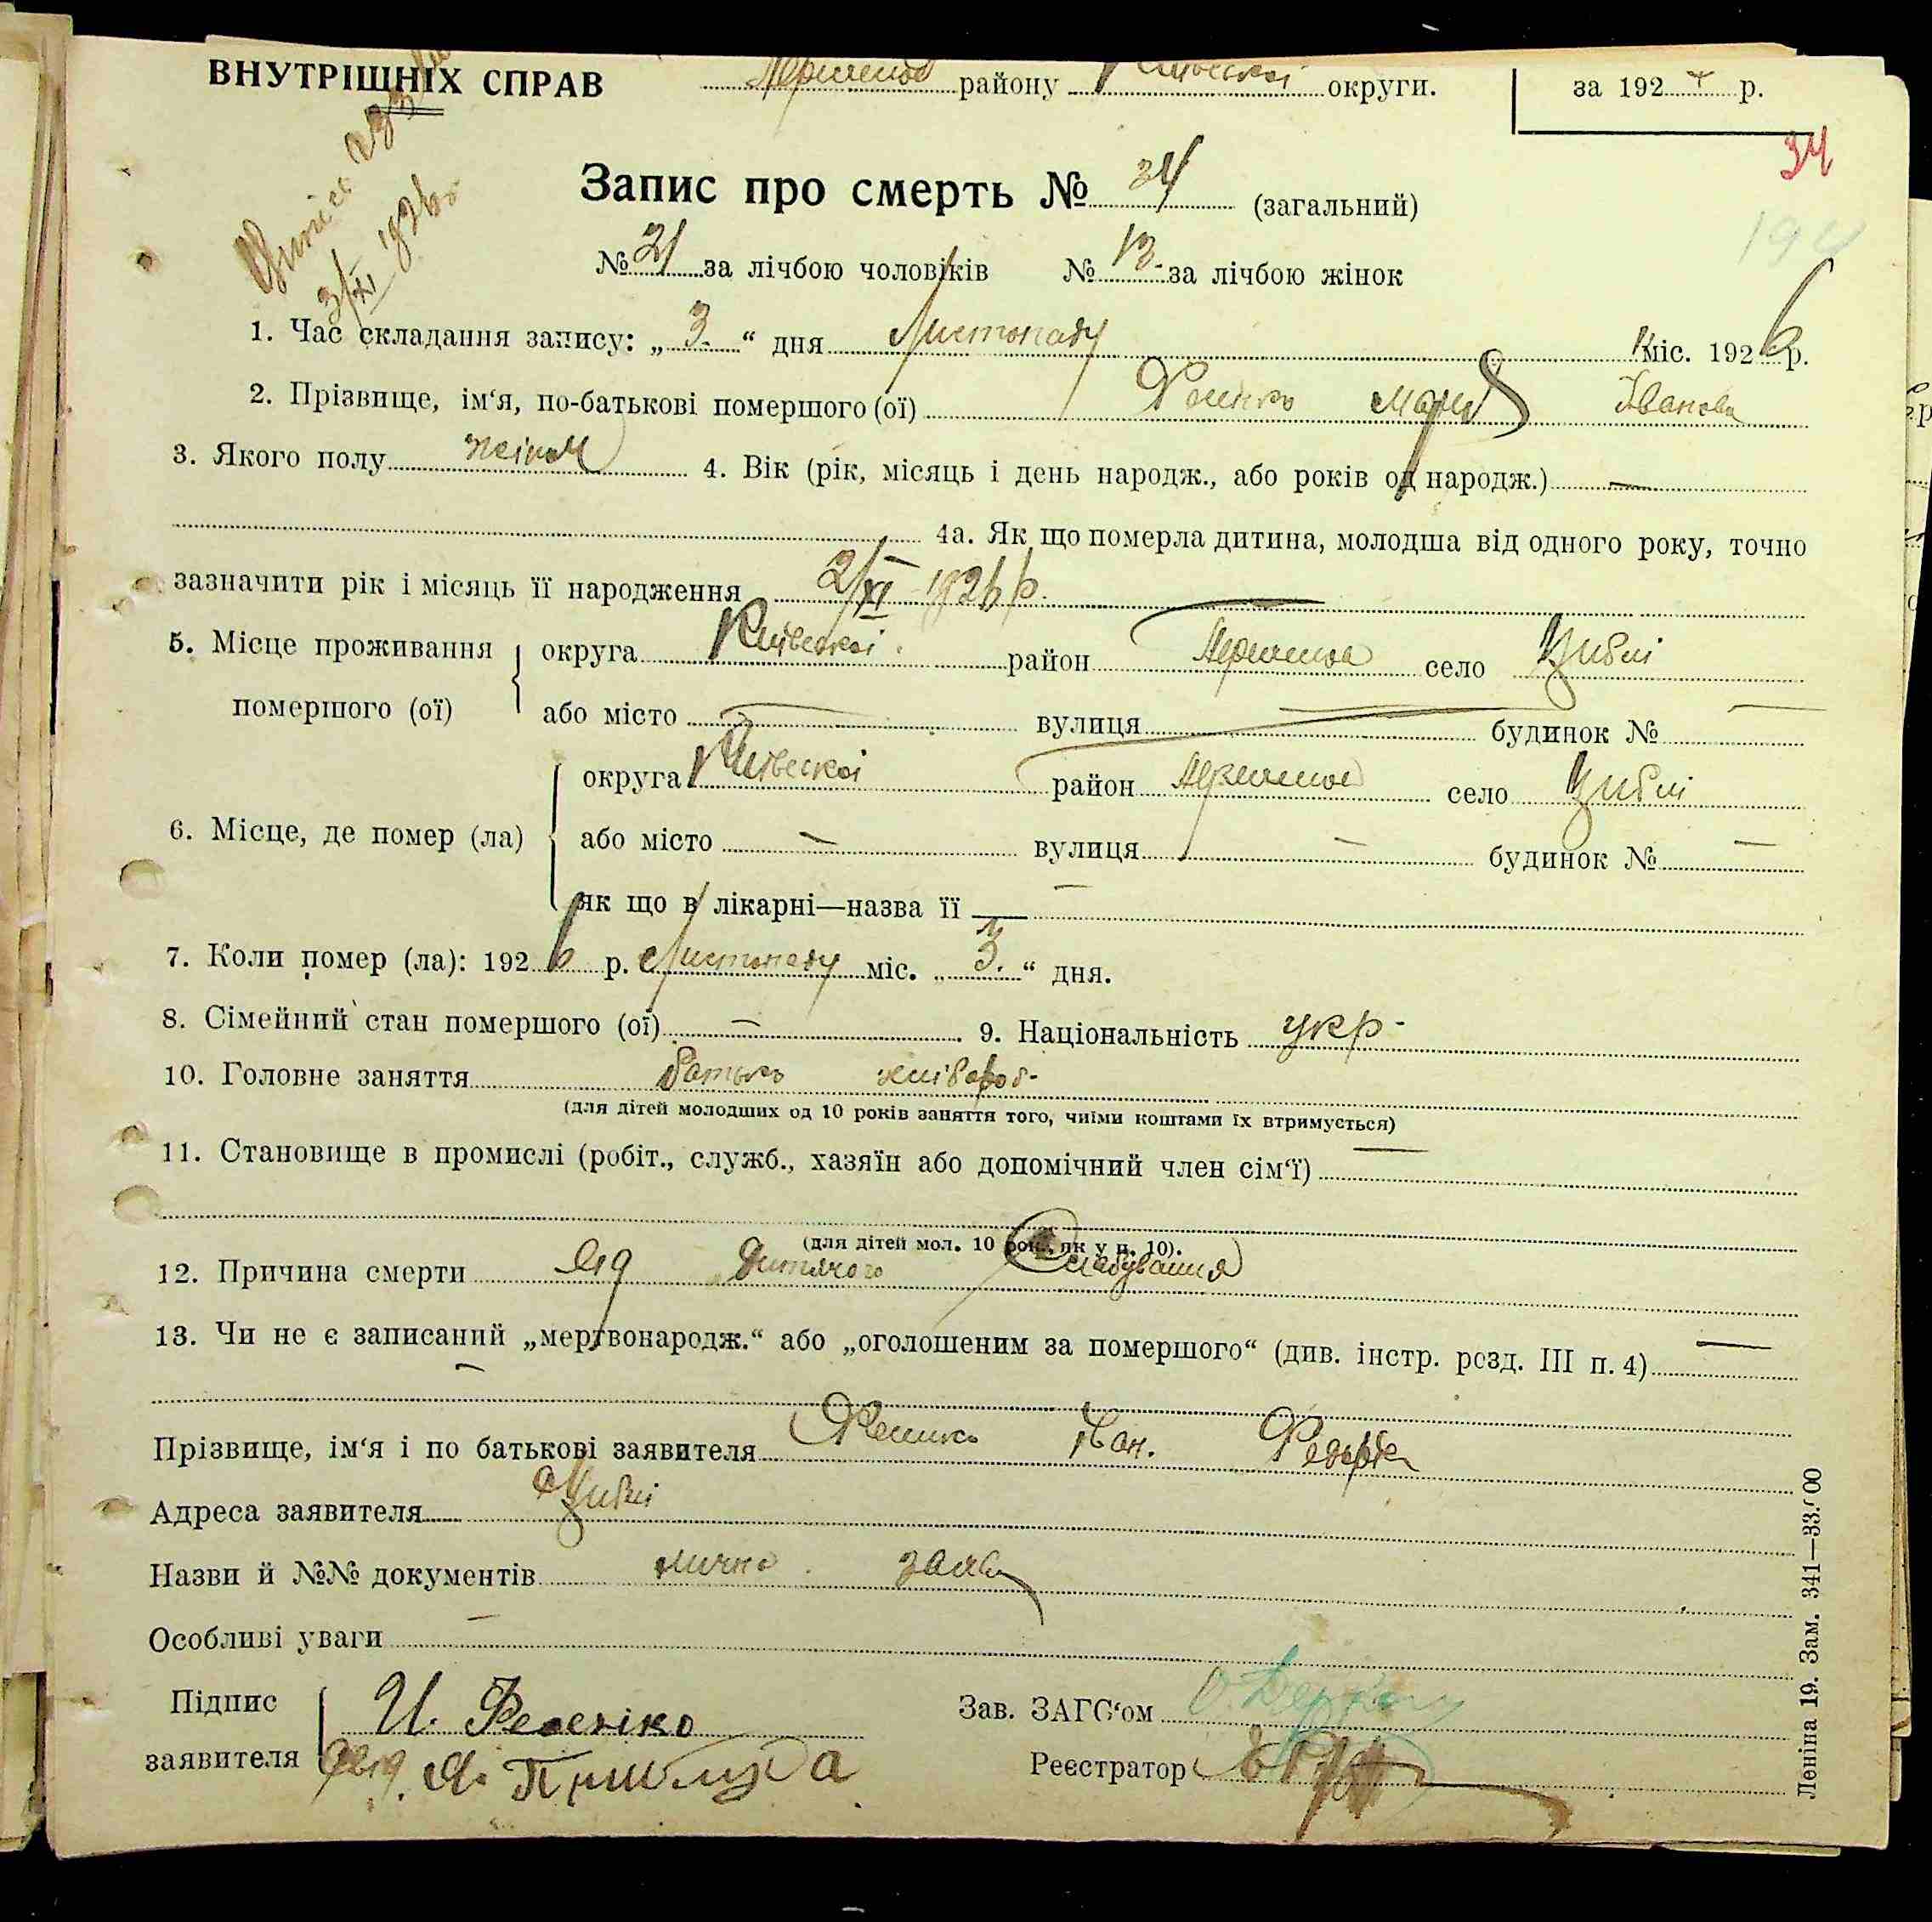 ВНУТРІШНІХ СПРАВ району Київської округи. за 192 р.
34
Запис про смерть № 34 (загальний)
3/XI 1926 р
№ 21 за лічбою чоловіків № 13 за лічбою жінок
1. Час складання запису: „ 3. “ дня Листопаду міс. 1926 р.
2. Прізвище, ім‘я, по-батькові помершого (ої) Марія Іванова
3. Якого полу 4. Вік (рік, місяць і день народж., або років од народж.) —
4а. Як що померла дитина, молодша від одного року, точно
зазначити рік і місяць її народження 2/XI 1926 р.
5. Місце проживання округа Київської район село Циблі
помершого (ої) або місто — вулиця — будинок № —
округа Київської район село Циблі
6. Місце, де помер (ла) або місто — вулиця — будинок № —
як що в лікарні—назва її —
7. Коли помер (ла): 1926 р. Листопаду міс. „ 3. “ дня.
8. Сімейний стан помершого (ої) — 9. Національність укр-
10. Головне заняття батько хлібороб-
(для дітей молодших од 10 років заняття того, чиїми коштами їх втримується)
11. Становище в промислі (робіт., служб., хазяїн або допомічний член сім‘ї) —
(для дітей мол. 10 рок. як у п. 10).
12. Причина смерти Од дитячого
13. Чи не є записаний „мертвонародж.“ або „оголошеним за помершого“ (див. інстр. розд. III п. 4) —
—
Прізвище, ім‘я і по батькові заявителя Іван. Федоров
Адреса заявителя с Циблі
Назви й №№ документів лична заява
Особливі уваги —
Підпис И. Зав. ЗАГС‘ом
заявителя Реєстратор
Леніна 19. Зам. 341—33.000